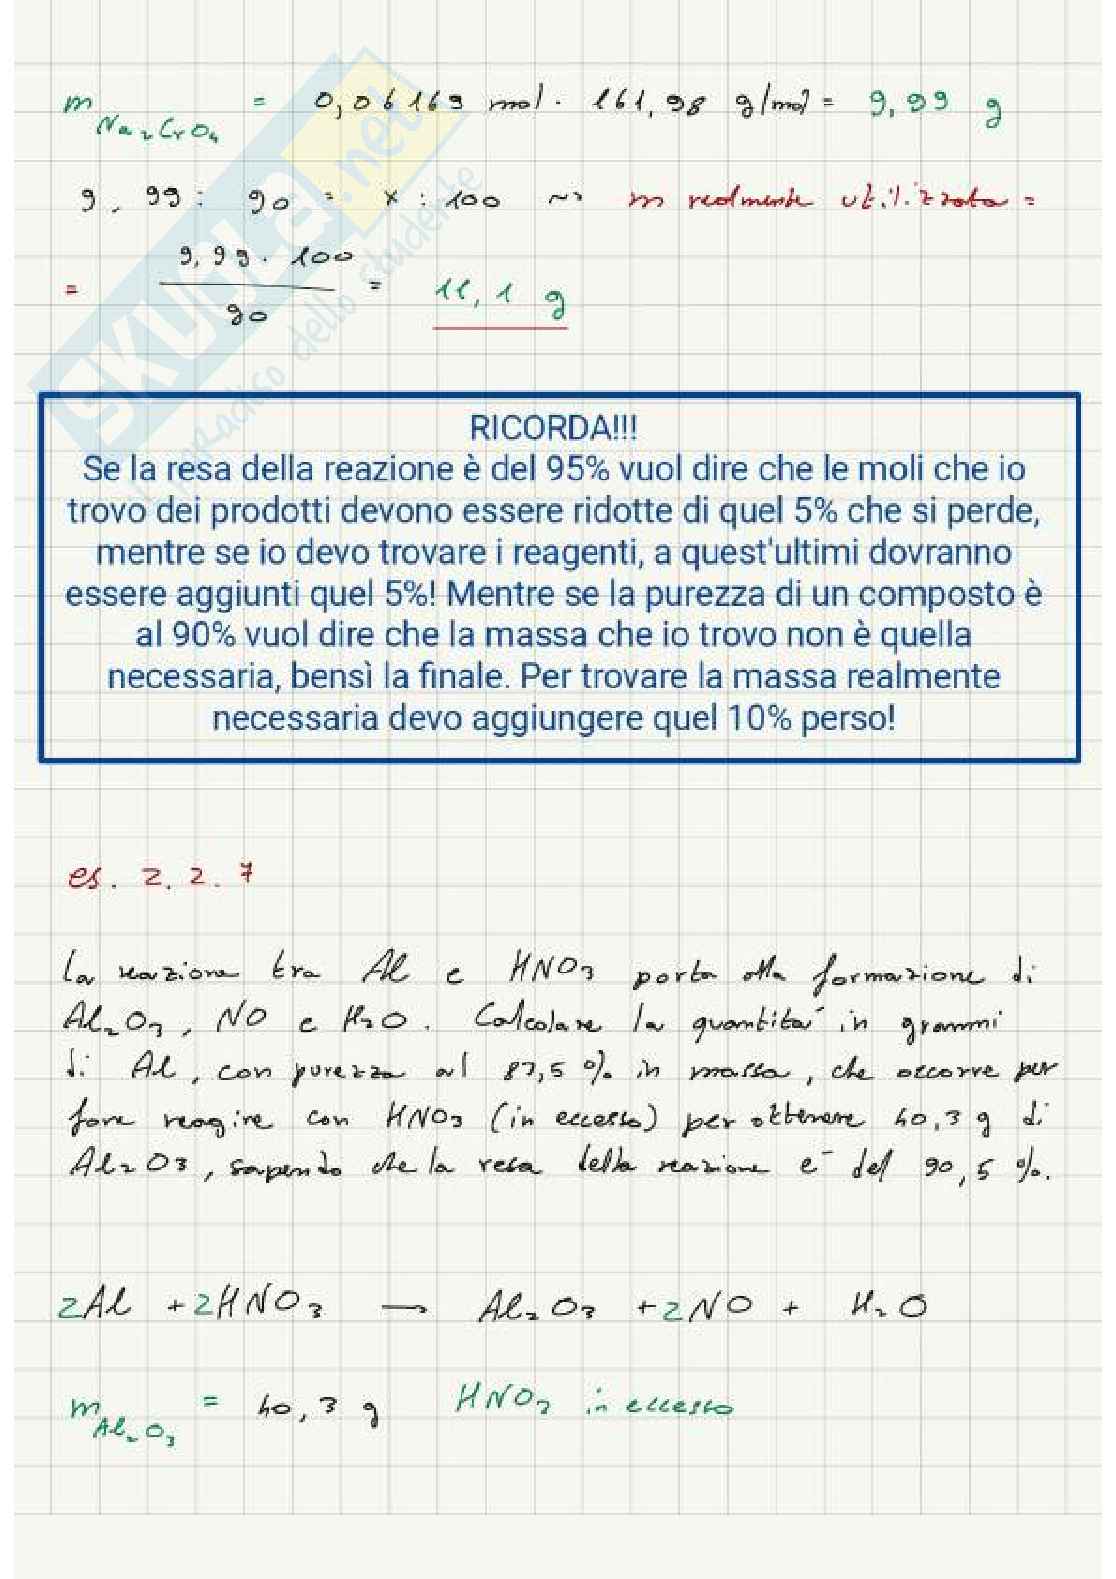 m Na₂CrO₄ = 0,06169 mol · 161,98 g/mol = 9,99 g
9,99 : 90 = x : 100 ~> m realmente utilizzata =
= 9,99 · 100 / 90 = 11,1 g
SKUOLA.net
il paradiso dello studente
RICORDA!!!
Se la resa della reazione è del 95% vuol dire che le moli che io
trovo dei prodotti devono essere ridotte di quel 5% che si perde,
mentre se io devo trovare i reagenti, a quest'ultimi dovranno
essere aggiunti quel 5%! Mentre se la purezza di un composto è
al 90% vuol dire che la massa che io trovo non è quella
necessaria, bensì la finale. Per trovare la massa realmente
necessaria devo aggiungere quel 10% perso!
es. 2.2.7
la reazione tra Al e HNO₃ porta alla formazione di
Al₂O₃, NO e H₂O. Calcolare la quantità in grammi
di Al, con purezza al 87,5 % in massa, che occorre per
fare reagire con HNO₃ (in eccesso) per ottenere 40,3 g di
Al₂O₃, sapendo che la resa della reazione è del 90,5 %.
2Al + 2HNO₃ → Al₂O₃ + 2NO + H₂O
m Al₂O₃ = 40,3 g HNO₃ in eccesso